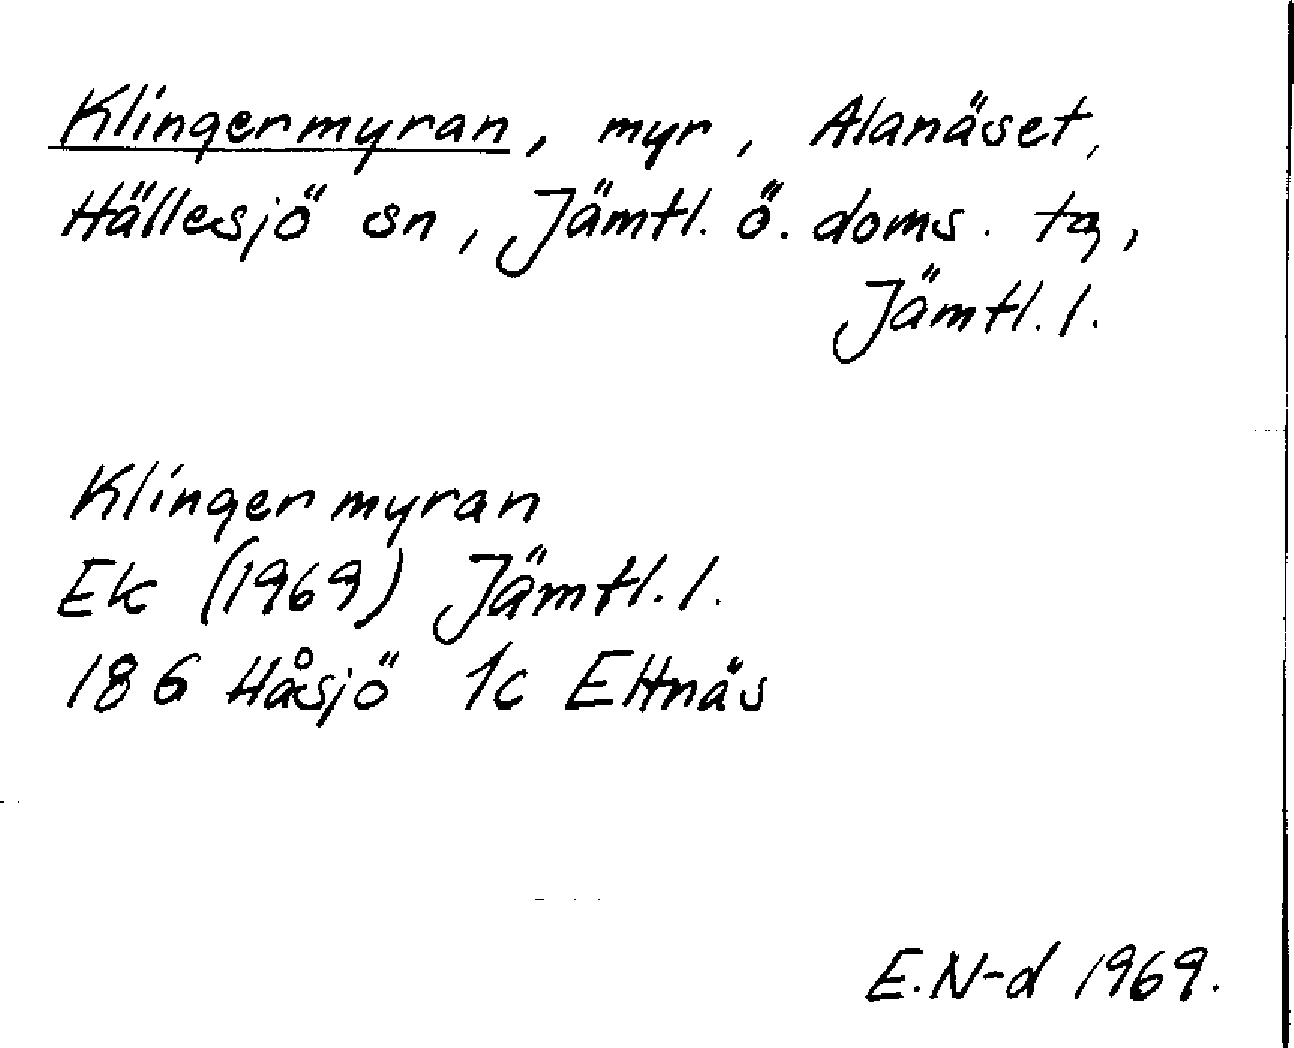 Klingermyran, myr, Alanäset,
Hällesjö sn, Jämtl. ö. doms. tg,
Jämtl. l.
Klingermyran
Ek (1969) Jämtl. l.
186 Håsjö 1c Ettnäs
E.N-d 1969.